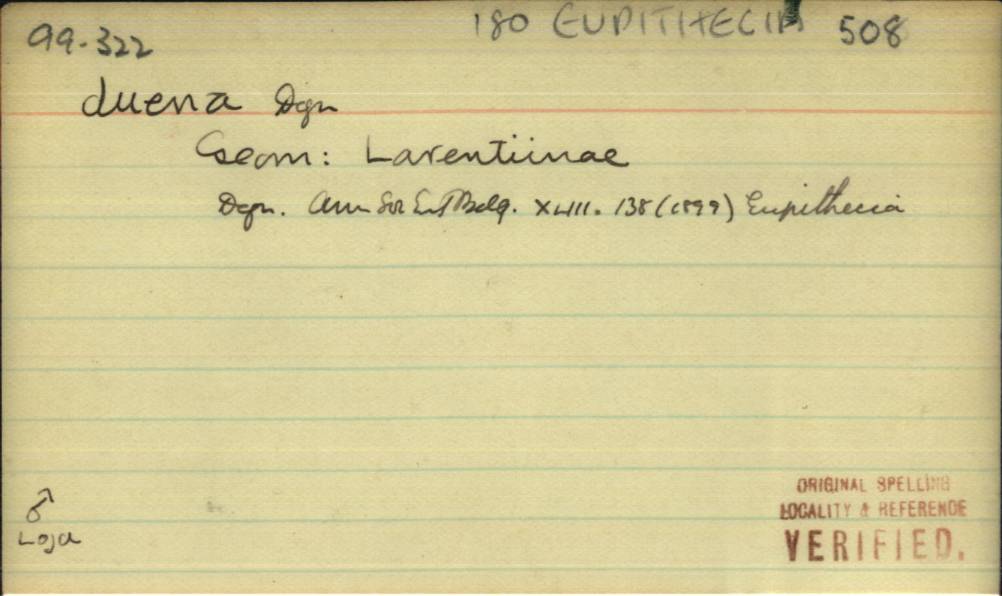 180 EUPITHECIA 508
99-322
duena Dgn
Geom: Larentiinae
Dgn. Ann Soc Ent Belg. XLIII. 138 (1899) Eupithecia
♂
Loja
ORIGINAL SPELLING
LOCALITY & REFERENCE
VERIFIED.